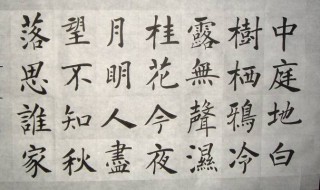 中庭地白
樹栖鴉冷
露無聲濕
桂花今夜
月明人盡
望不知秋
落思誰家